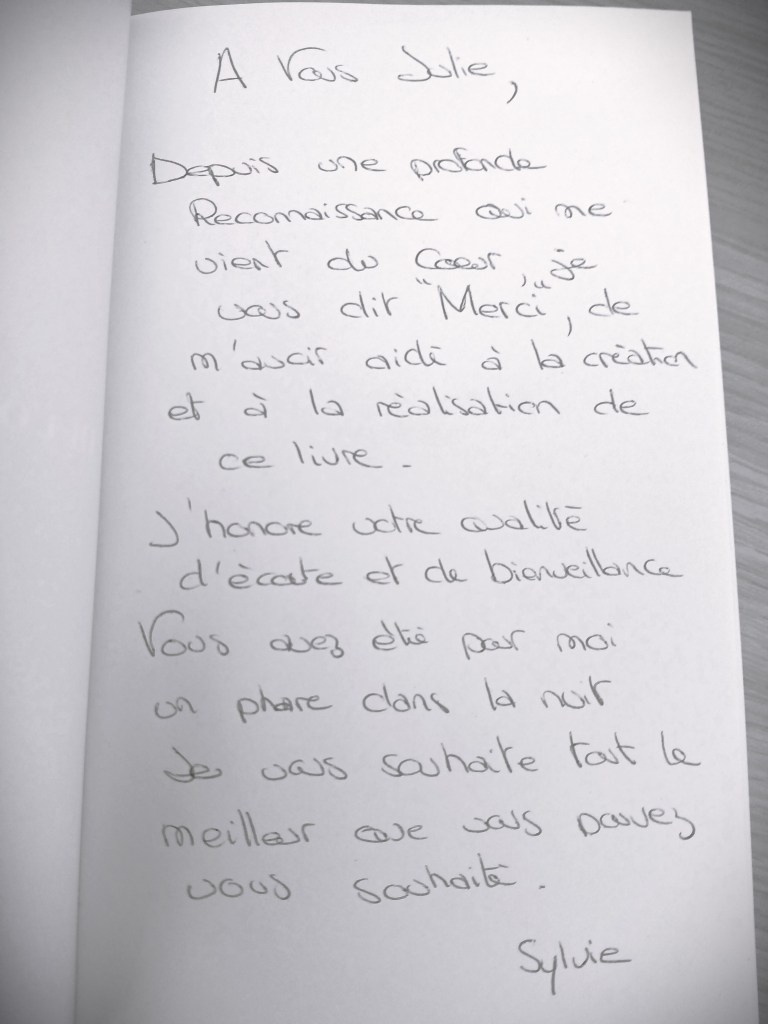 A Vous Julie,
Depuis une profonde
Reconnaissance qui me
vient du Coeur, je
vous dit "Merci", de
m'avoir aidé à la création
et à la réalisation de
ce livre.
J'honore votre qualité
d'écoute et de bienveillance
Vous avez été pour moi
un phare dans la nuit
Je vous souhaite tout le
meilleur que vous pouvez
vous souhaité.
Sylvie